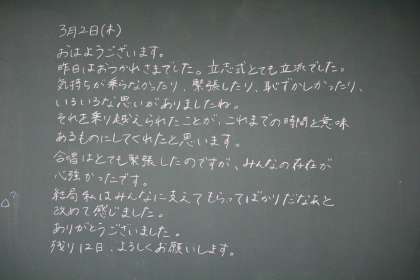 3月2日(木)
おはようございます。
昨日はおつかれさまでした。立志式とても立派でした。
気持ちが乗らなかったり、緊張したり、恥ずかしかったり、
いろいろな思いがありましたね。
それを乗り越えられたことが、これまでの時間を意味
あるものにしてくれたと思います。
合唱はとても緊張したのですが、みんなの存在が
心強かったです。
結局私はみんなに支えてもらってばかりだなぁと
改めて感じました。
ありがとうございました。
残り12日、よろしくお願いします。